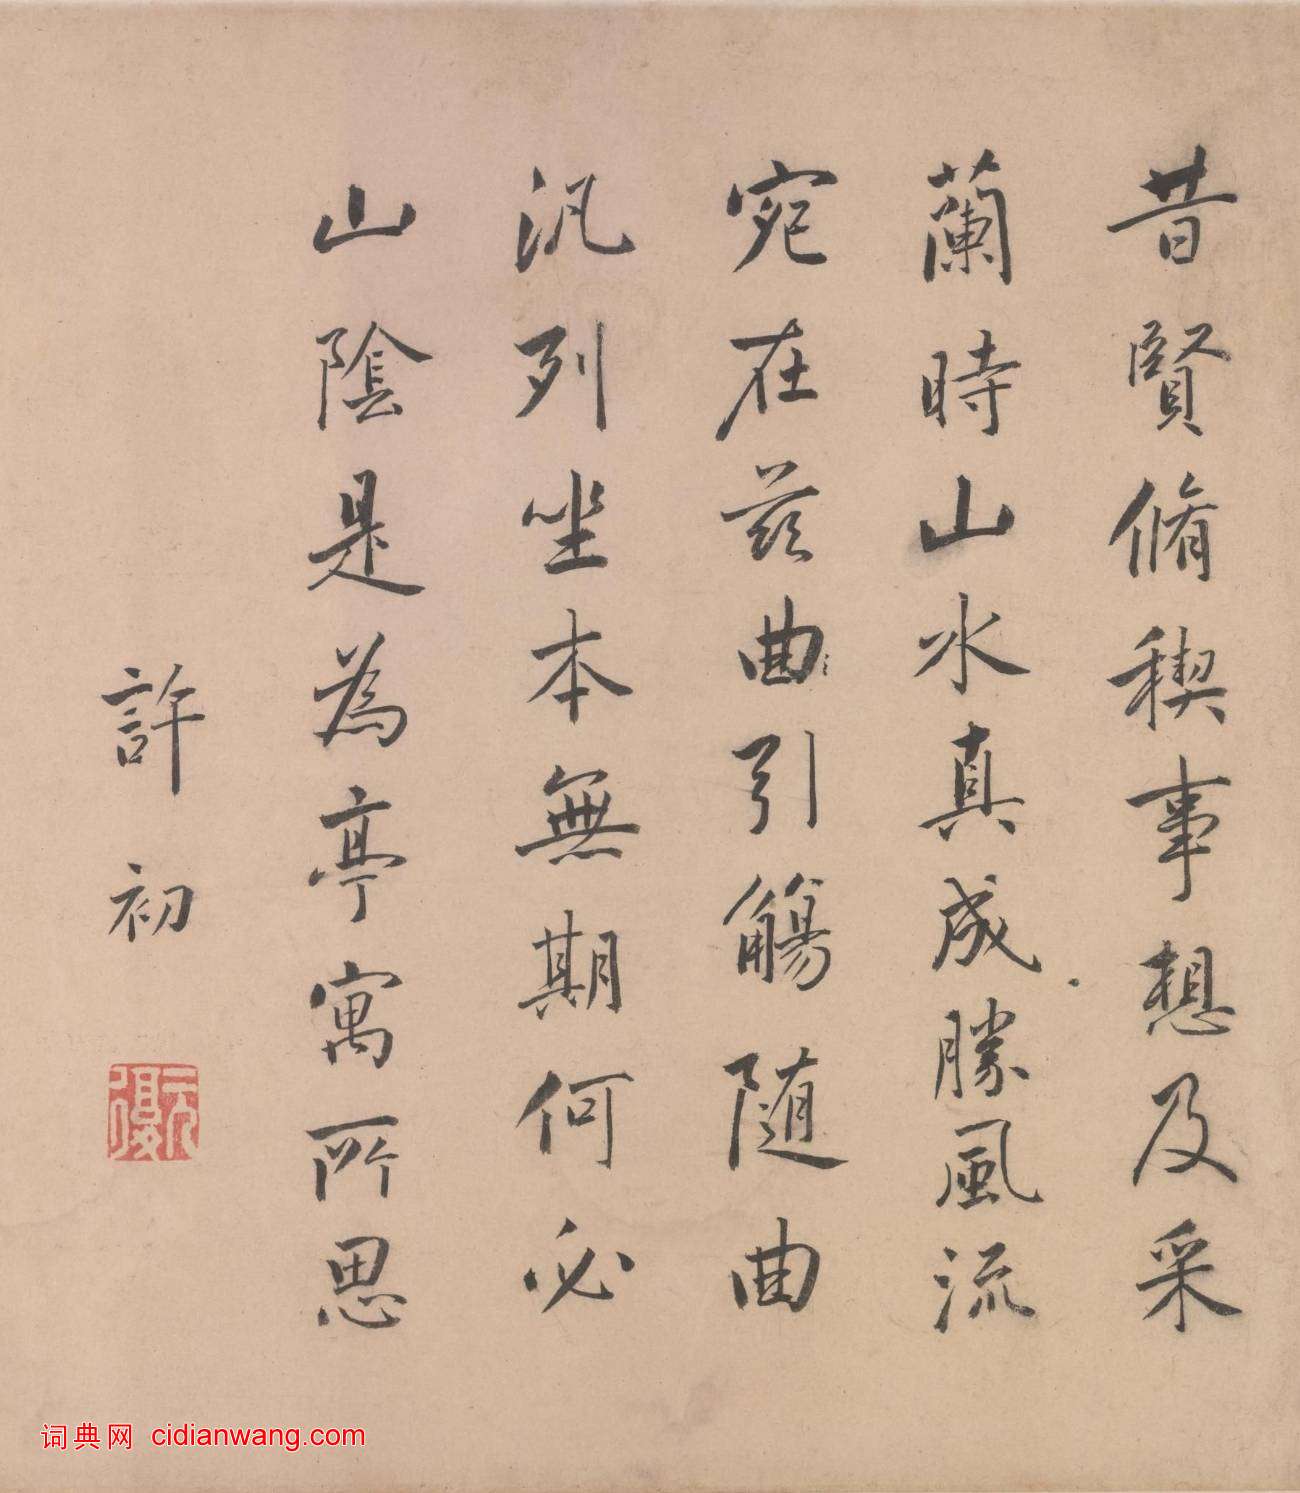 昔賢脩稧事想及采
蘭時山水真成勝風流
宛在茲曲引觴隨曲
汎列坐本無期何必
山陰是為亭寓所思
許初
元復
词典网 cidianwang.com